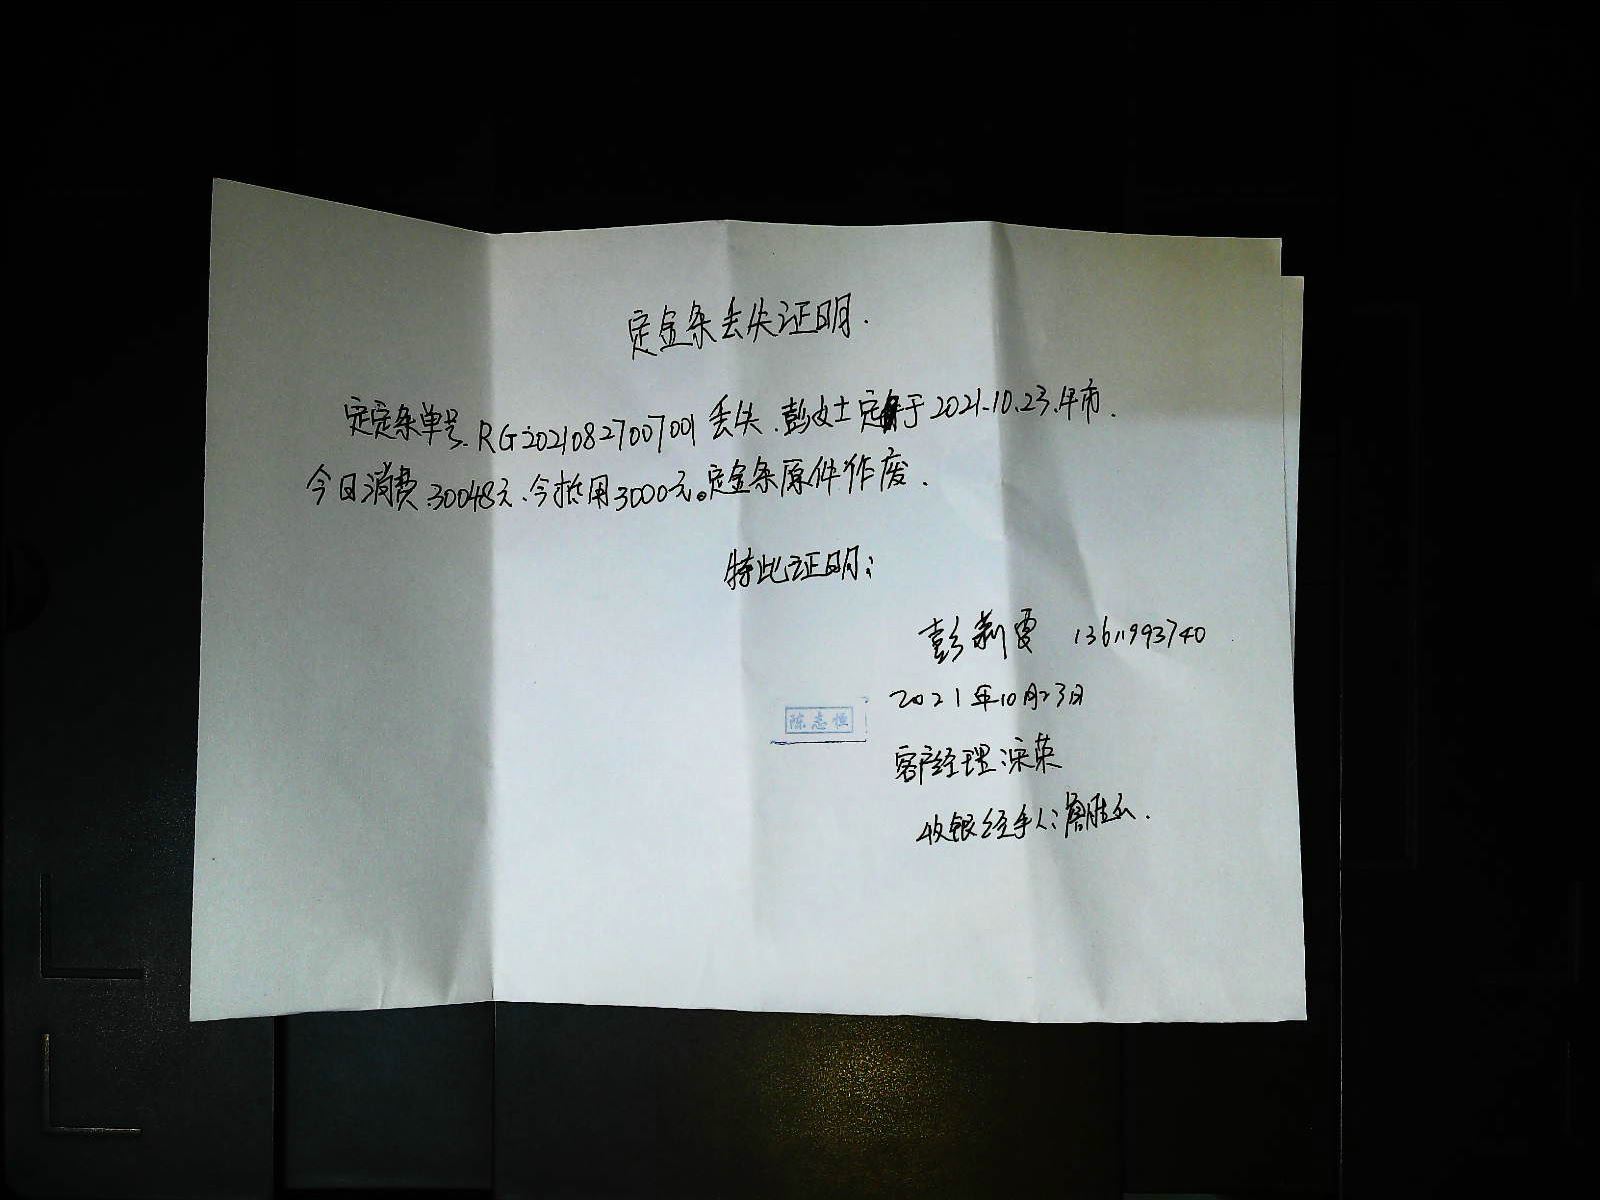 定金条丢失证明.
定定条单号. RG:20210827007001 丢失. 彭女士 定 于 2021.10.23.
今日消费.30048元.今抵用3000元。定金条原件作废.
特此证明:
彭莉 13611993740
2021年10月23日
陈志恒
客户经理:宋荣
收银经手人: